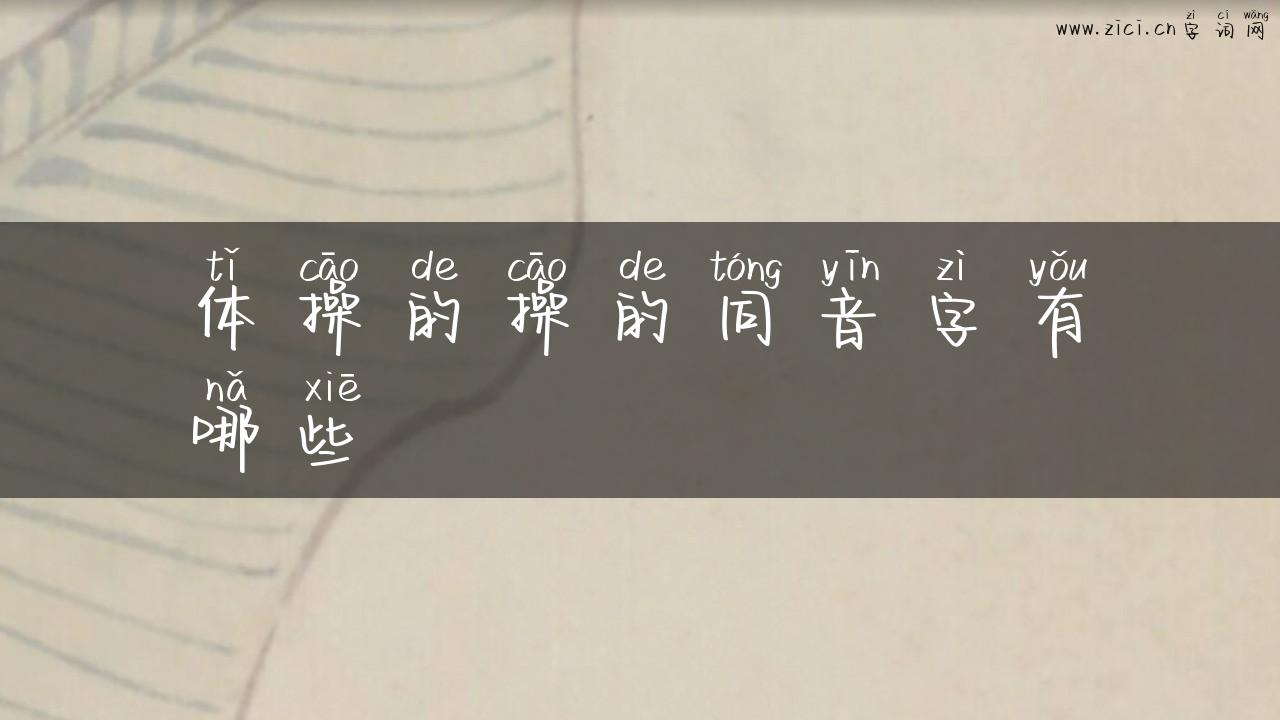 zì cí wǎng
www.zici.cn 字 词 网
tǐ cāo de cāo de tóng yīn zì yǒu
体 操 的 操 的 同 音 字 有
nǎ xiē
哪 些